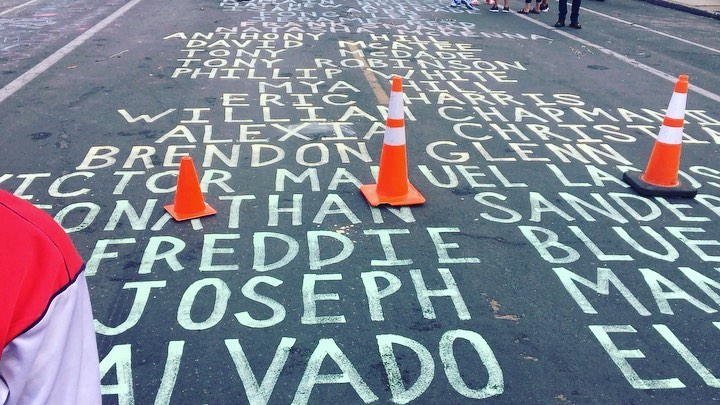 ANTHONY HILL
DAVID MCATEE
TONY MCDADE
TONY ROBINSON
PHILLIP WHITE
MYA HALL
ERIC HARRIS
WILLIAM CHAPMAN II
ALEXIA CHRISTIAN
BRENDON GLENN
VICTOR MANUEL LA
JONATHAN SANDERS
FREDDIE BLUE
JOSEPH MAN
SALVADO EL